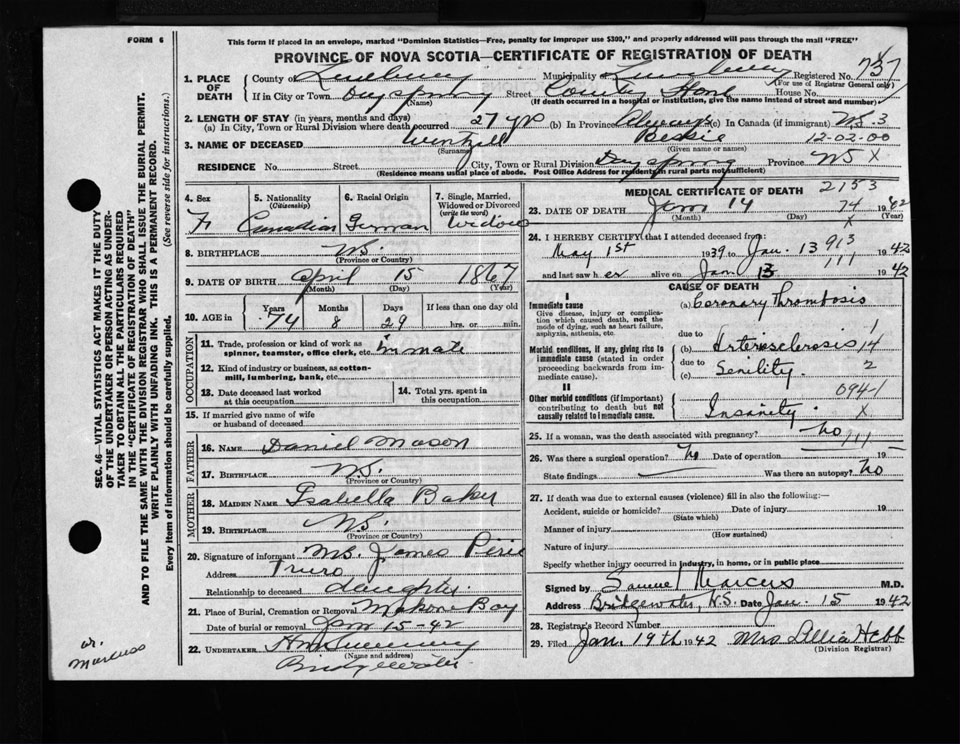 FORM 6
This form if placed in an envelope, marked "Dominion Statistics—Free, penalty for improper use $300," and properly addressed will pass through the mail "FREE"
PROVINCE OF NOVA SCOTIA—CERTIFICATE OF REGISTRATION OF DEATH
SEC. 46—VITAL STATISTICS ACT MAKES IT THE DUTY
OF THE UNDERTAKER OR PERSON ACTING AS UNDER-
TAKER TO OBTAIN ALL THE PARTICULARS REQUIRED
IN THE "CERTIFICATE OF REGISTRATION OF DEATH"
AND TO FILE THE SAME WITH THE DIVISION REGISTRAR WHO SHALL ISSUE THE BURIAL PERMIT.
WRITE PLAINLY WITH UNFADING INK. THIS IS A PERMANENT RECORD.
Every item of information should be carefully supplied. (See reverse side for instructions.)
1. PLACE OF DEATH
County of Lunenburg Municipality Lunenburg Registered No. 737
(For use of Registrar General only)
If in City or Town Dayspring Street County Home House No.
(Name) (If death occurred in a hospital or institution, give the name instead of street and number)
2. LENGTH OF STAY (in years, months and days)
(a) In City, Town or Rural Division where death occurred 27 yrs (b) In Province Always (c) In Canada (if immigrant) N.S. 3
3. NAME OF DECEASED Wentzell Bessie 12-02-00
(Surname) (Given name or names)
RESIDENCE No. Street City, Town or Rural Division Dayspring Province NS X
(Residence means usual place of abode. Post Office Address for residents in rural parts not sufficient)
4. Sex
F
5. Nationality
(Citizenship)
Canadian
6. Racial Origin
German
7. Single, Married, Widowed or Divorced
(write the word)
Widow
8. BIRTHPLACE N.S.
(Province or Country)
9. DATE OF BIRTH April 15 1867
(Month) (Day) (Year)
10. AGE in Years Months Days If less than one day old
74 8 29 hrs. or min.
OCCUPATION
11. Trade, profession or kind of work as
spinner, teamster, office clerk, etc. Inmate
12. Kind of industry or business, as cotton-
mill, lumbering, bank, etc.
13. Date deceased last worked
at this occupation
14. Total yrs. spent in
this occupation
15. If married give name of wife
or husband of deceased
FATHER
16. NAME Daniel Mason
17. BIRTHPLACE N.S.
(Province or Country)
MOTHER
18. MAIDEN NAME Isabella Baker
19. BIRTHPLACE N.S.
(Province or Country)
20. Signature of informant Mrs. James Pirie
Address Truro
Relationship to deceased daughter
21. Place of Burial, Cremation or Removal Mahone Bay
Date of burial or removal Jan 15-42
22. UNDERTAKER
(Name and address)
Bridgewater
dr.
Marcuss
MEDICAL CERTIFICATE OF DEATH 2153
23. DATE OF DEATH Jan 14 74 1942
(Month) (Day) (Year)
X
24. I HEREBY CERTIFY that I attended deceased from:
May 1st 1939 to Jan. 13 913 1942
111
and last saw her alive on Jan 13 1942
CAUSE OF DEATH
I
Immediate cause
Give disease, injury or complica-
tion which caused death, not the
mode of dying, such as heart failure,
asphyxia, asthenia, etc.
(a) Coronary Thrombosis
due to
1
Morbid conditions, if any, giving rise to
immediate cause (stated in order
proceeding backwards from im-
mediate cause).
(b) Arteriosclerosis 14
due to
(c) Senility. 2
II
Other morbid conditions (if important)
contributing to death but not
causally related to immediate cause.
0941
Insanity. X
25. If a woman, was the death associated with pregnancy? No 111
26. Was there a surgical operation? No Date of operation 19
State findings Was there an autopsy? No
27. If death was due to external causes (violence) fill in also the following:—
Accident, suicide or homicide? Date of injury 19
(State which)
Manner of injury
(How sustained)
Nature of injury
Specify whether injury occurred in industry, in home, or in public place
Signed by Samuel Marcus M.D.
Address Bridgewater, N.S. Date Jan. 15 1942
28. Registrar's Record Number
29. Filed Jan. 19th 1942 Mrs Lillia Hebb
(Division Registrar)